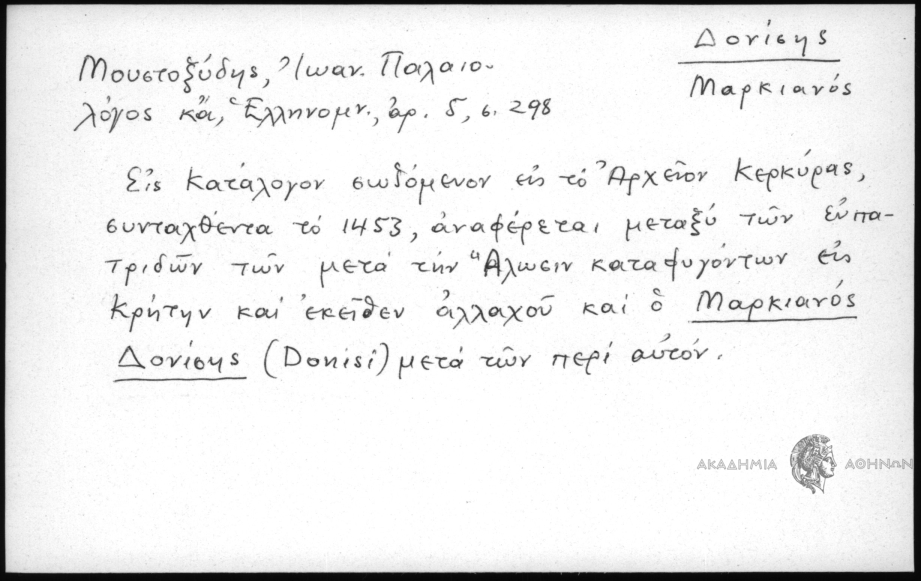 Δονίσης
Μαρκιανός
Μουστοξύδης, Ἰωαν. Παλαιο-
λόγος κἄ, Ἑλληνομν., ἀρ. 5, σ. 298
Εἰς κατάλογον σωζόμενον εἰς τό Ἀρχεῖον Κερκύρας,
συνταχθέντα τό 1453, ἀναφέρεται μεταξύ τῶν εὐπα-
τριδῶν τῶν μετά τήν Ἅλωσιν καταφυγόντων εἰς
Κρήτην καί ἐκεῖθεν ἀλλαχοῦ καί ὁ Μαρκιανός
Δονίσης (Donisi) μετά τῶν περί αὐτόν.
ΑΚΑΔΗΜΙΑ ΑΘΗΝΩΝ